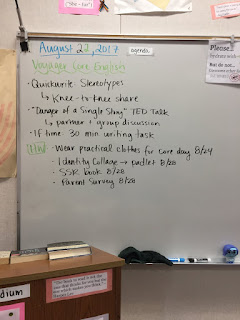 August 22, 2017
agenda
Voyager Core English
· Quickwrite: Stereotypes
↳ Knee-to-Knee share
· "Danger of a Single Story" TED Talk
↳ partner + group discussion
· If time: 30 min writing task
HW: · Wear practical clothes for core day 8/24
· Identity Collage → padlet 8/28
· SSR book 8/28
· Parent Survey 8/28
Please